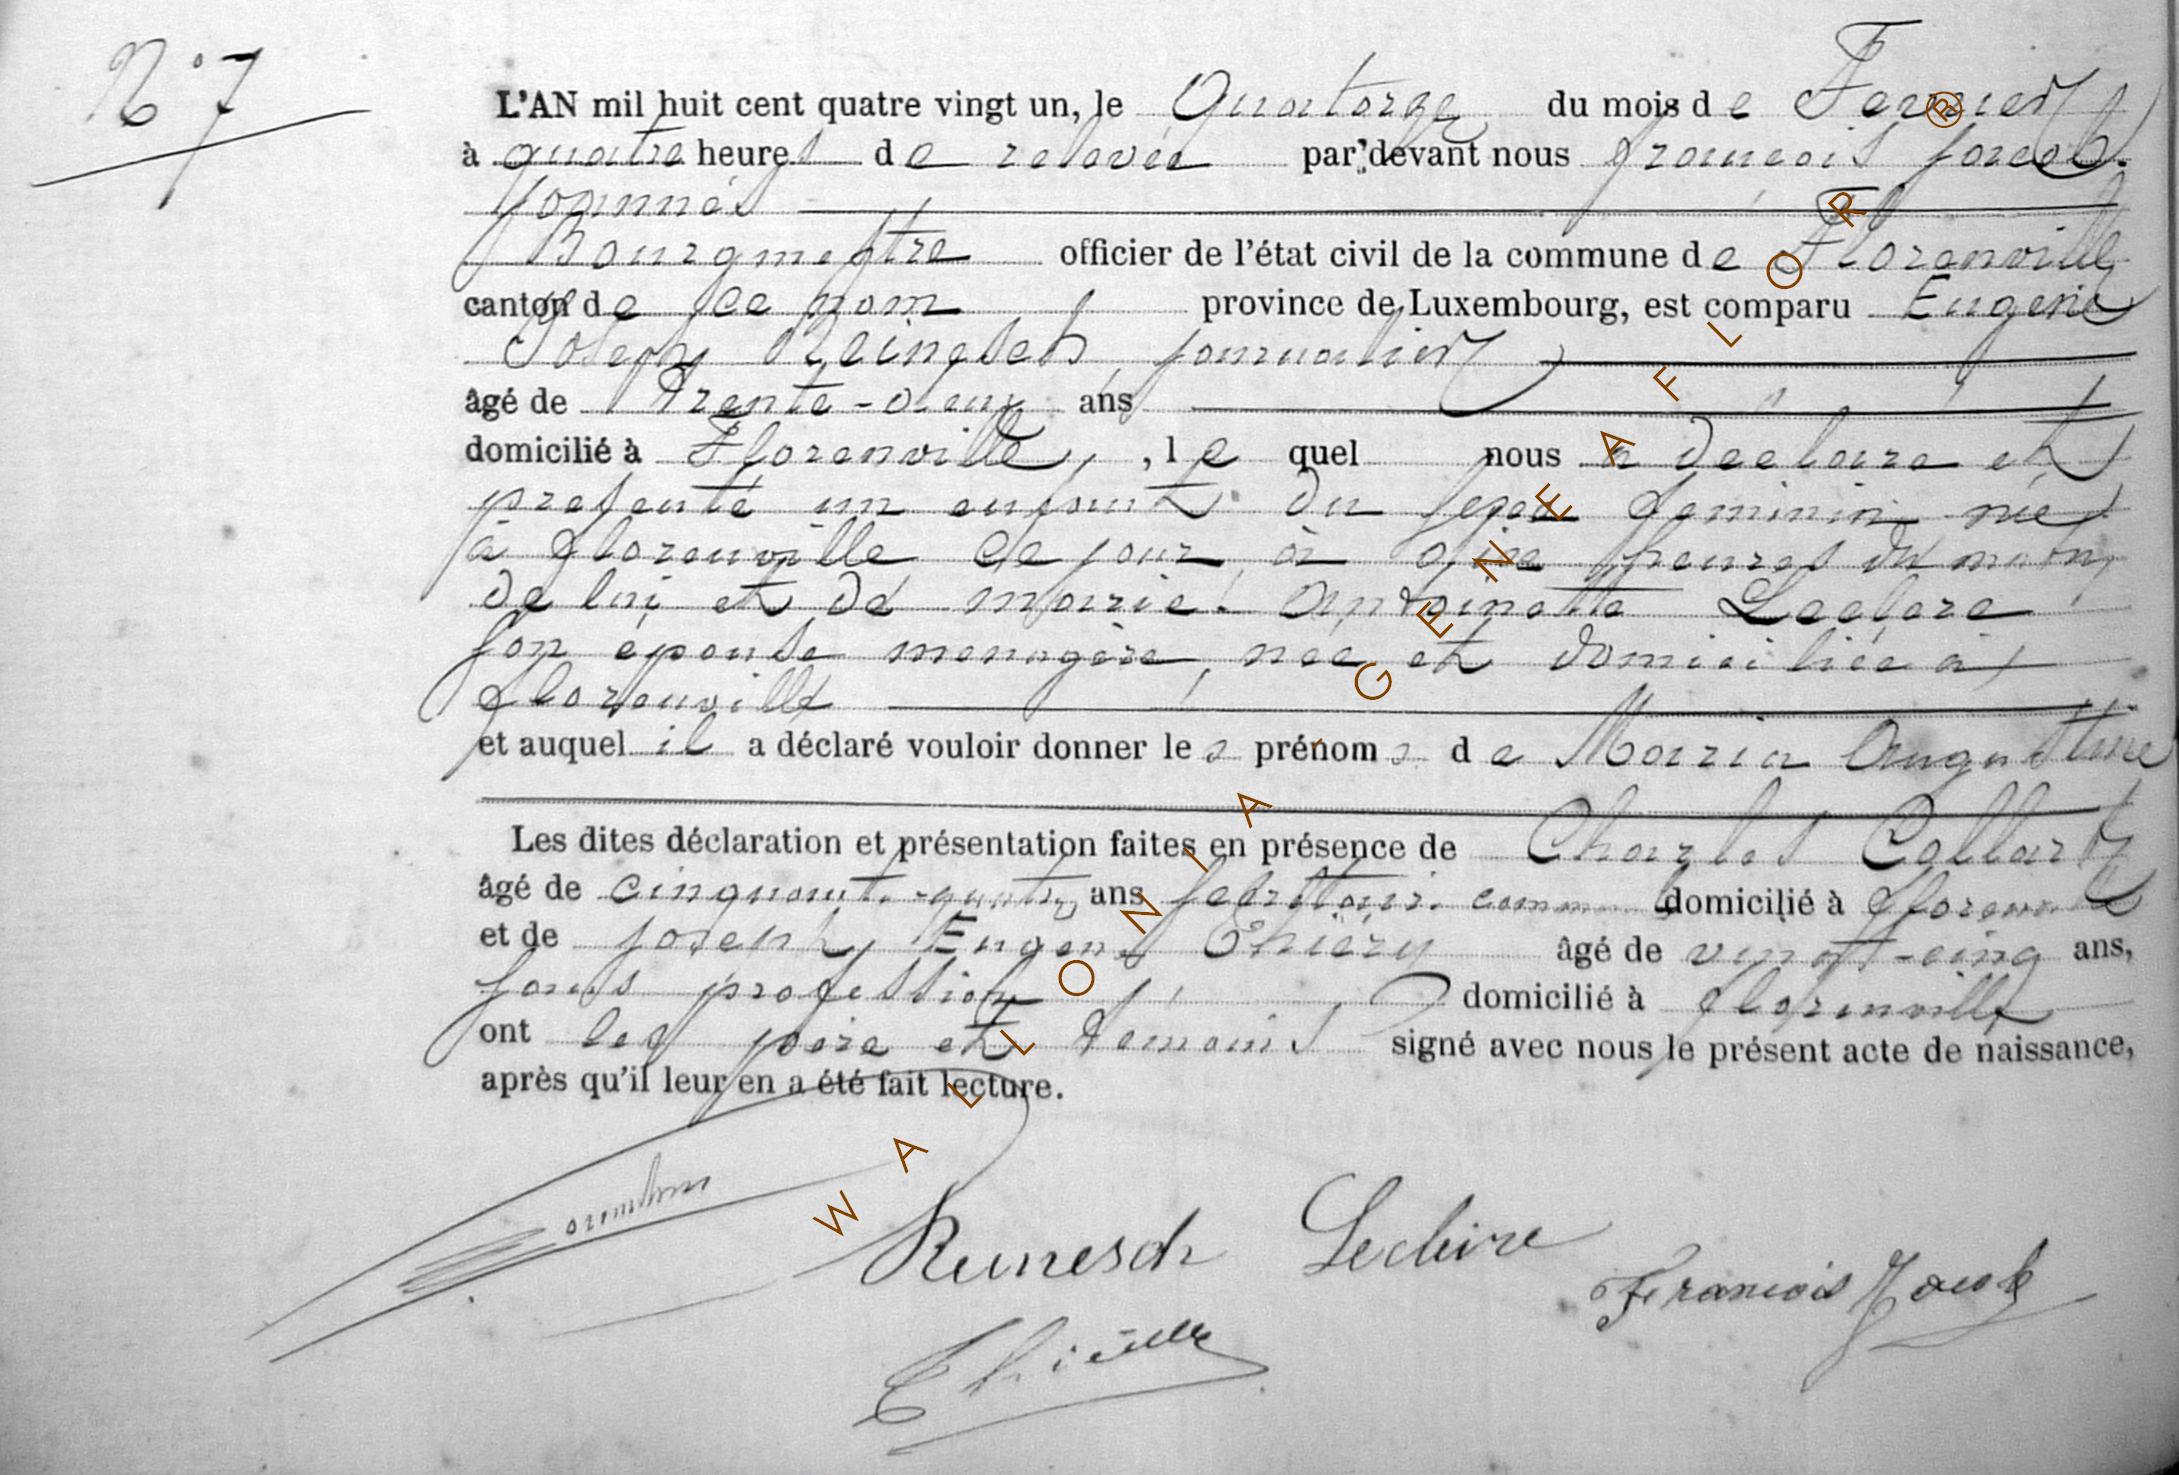 N° 7
L'AN mil huit cent quatre vingt un, le Quatorze du mois de Fevrier
à quatre heures de relevée par devant nous françois
officier de l'état civil de la commune de Florenville
canton de ce nom province de Luxembourg, est comparu Eugène
Joseph Reinesch journalier
âgé de Trente-deux ans
domicilié à Florenville, , le quel nous a déclaré et
présenté un enfant du sexe féminin née
à florenville ce jour, à heures du matin,
de lui et de marie Antoinette Leclere
son épouse menagère, née et domiciliée à
florenville
et auquel il a déclaré vouloir donner les prénoms de Maria Augustine
Les dites déclaration et présentation faites en présence de Charles Collart
âgé de cinquante-quatre ans domicilié à florenville
et de joseph Eugène Thiéry âgé de vingt-cinq ans,
sans profession domicilié à florenville
ont les père et témoins signé avec nous le présent acte de naissance,
après qu'il leur en a été fait lecture.
Reinesch
François
WALLONIA GENEAFLOR®